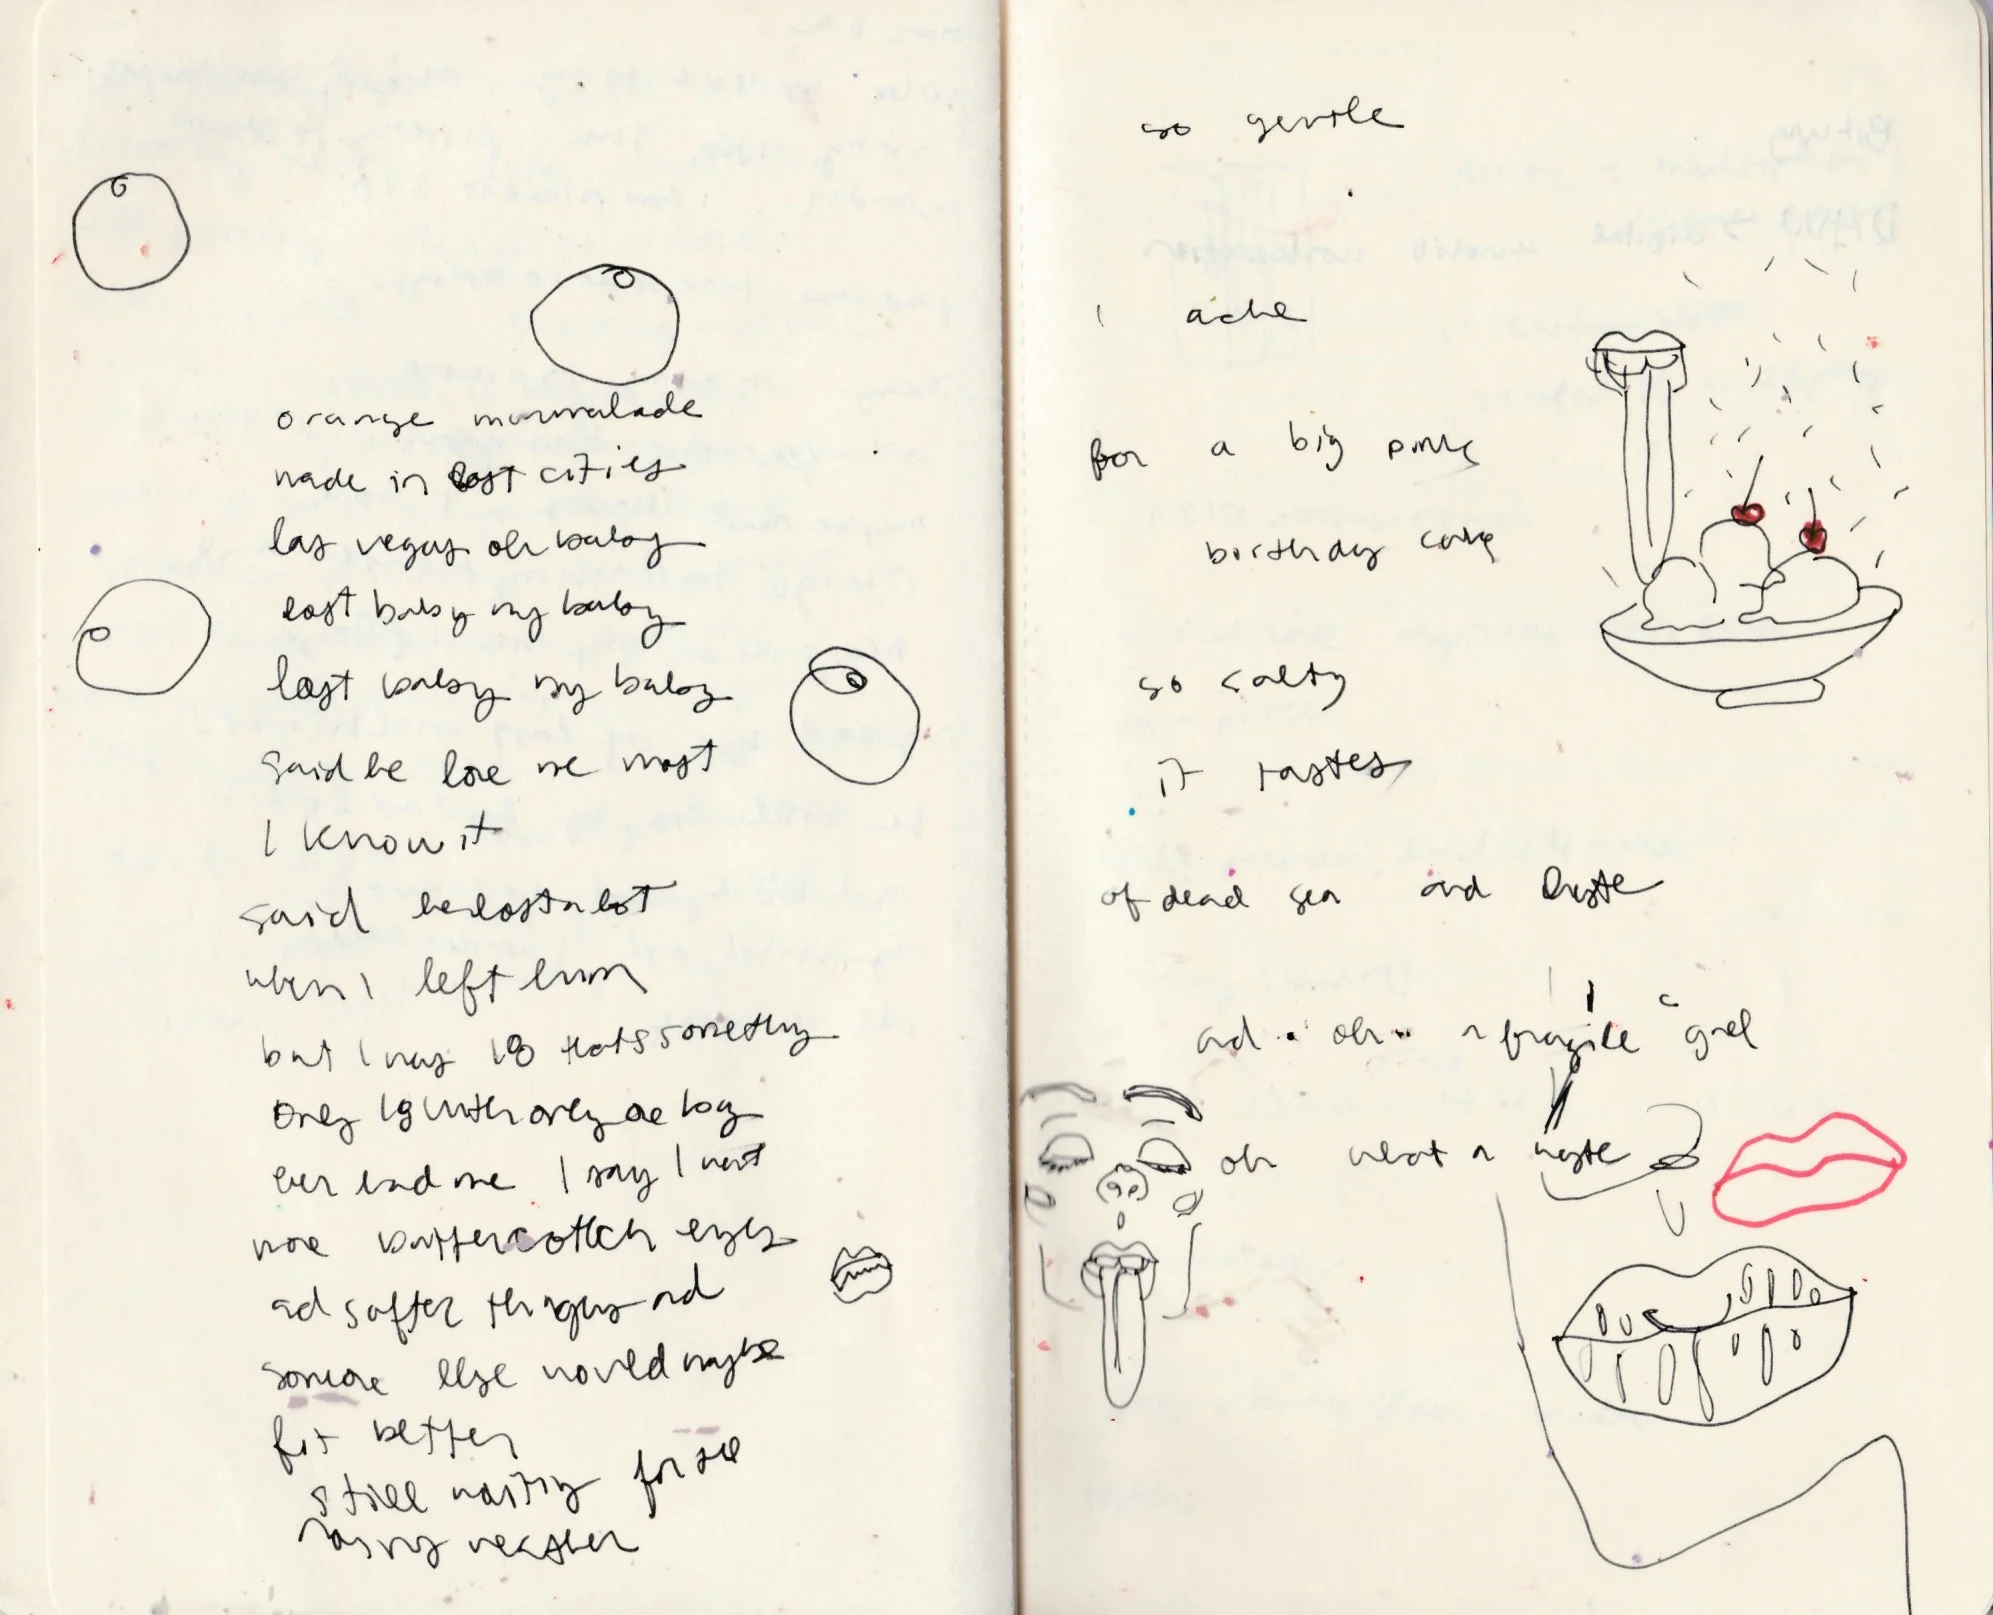 orange marmalade
made in lost cities
las vegas oh baby
lost baby my baby
lost baby my baby
said he love me most
I know it
said he lost a lot
when I left him
but I was 18 thats something
only 18 with only one boy
ever had me I say I want
more butterscotch eyes
and softer thighs and
someone else would maybe
fit better
still waiting for the
rainy weather
so gentle
i ache
for a big pink
birthday cake
so salty
it tastes
of dead sea and
and oh a fragile girl
oh what a waste